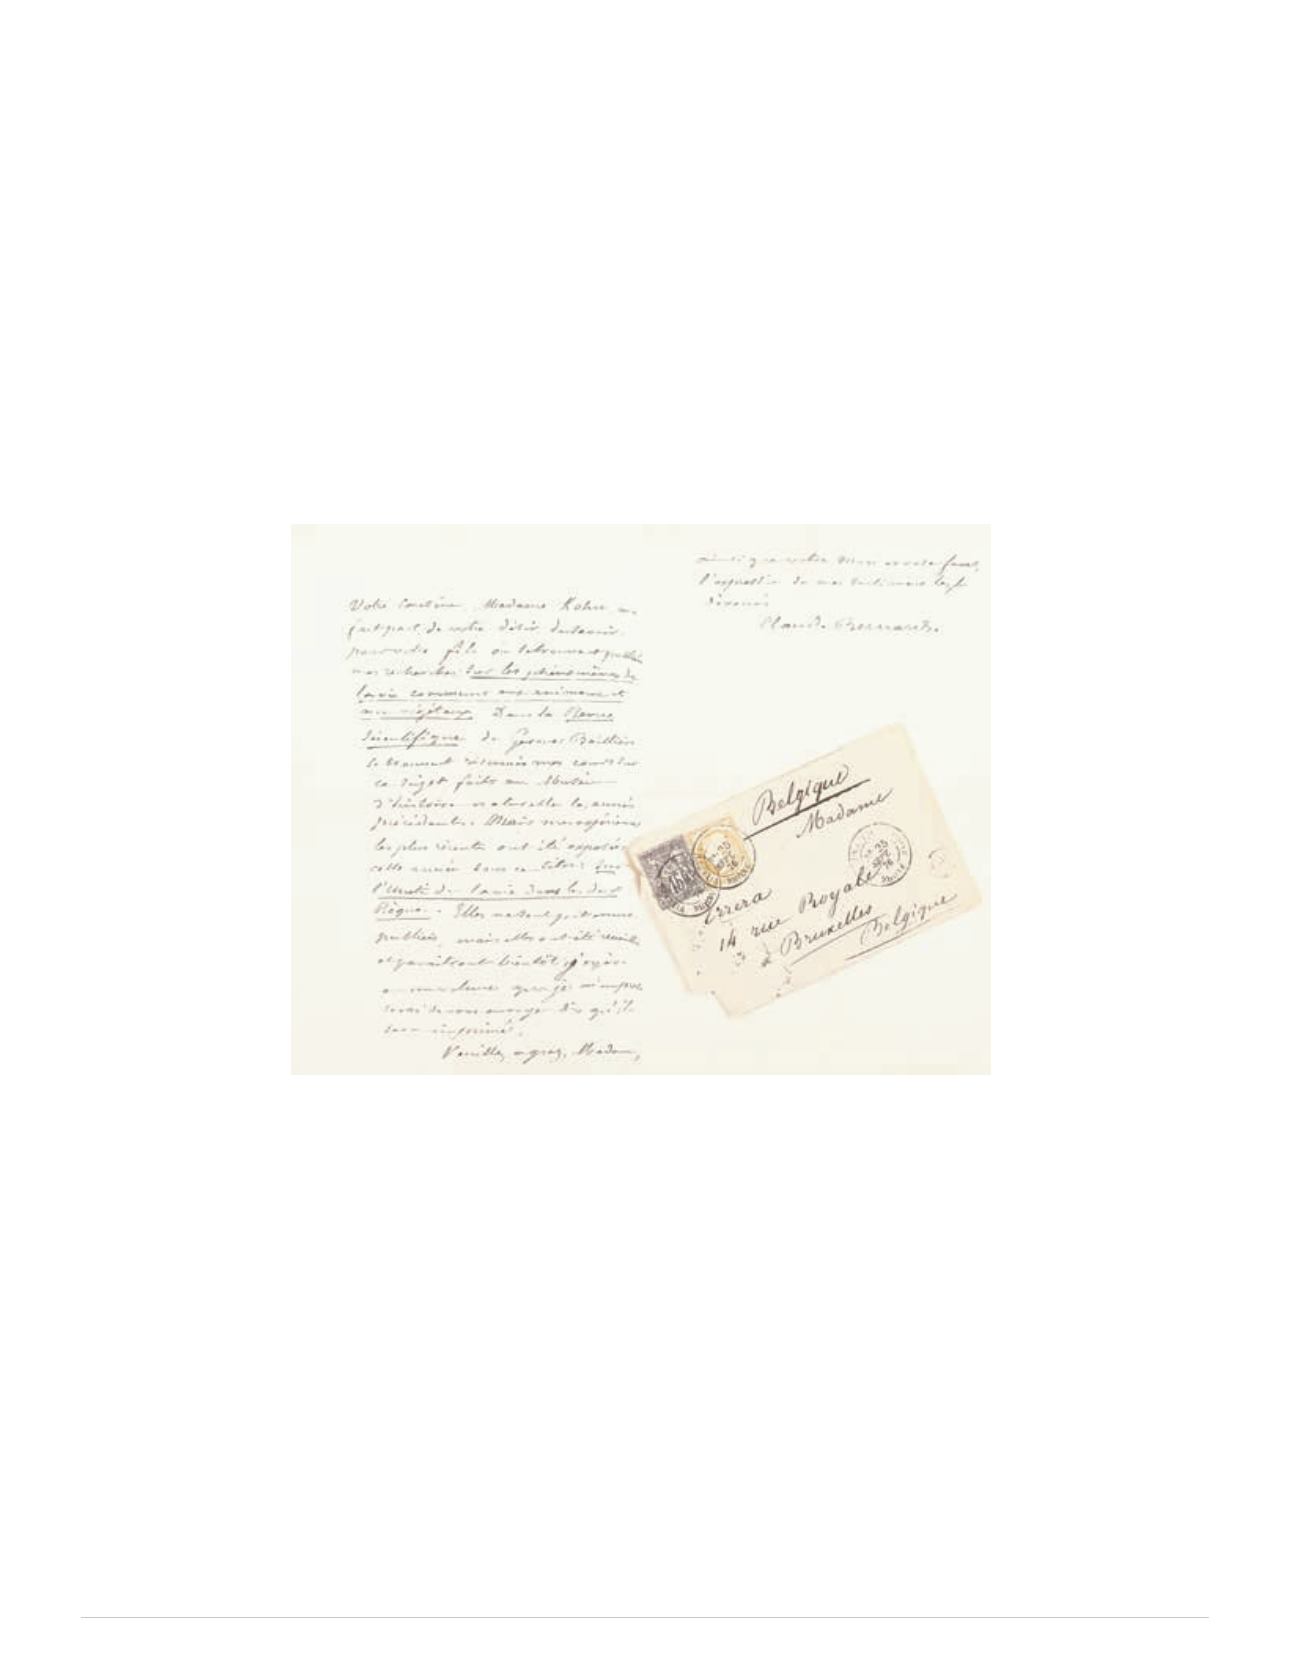 Votre cousine, Madame Kohn, me
fait part de votre désir de savoir
pour votre fils où se trouvent publiées
mes recherches sur les phénomènes de
la vie communs aux animaux et
aux végétaux. Dans la Revue
Scientifique de Germer Baillière
se trouvent résumés mes cours sur
ce sujet faits au Muséum
d'histoire naturelle les années
précédentes. Mais mes expériences
les plus récentes ont été exposées
cette année sous ce titre: Sur
l'Unité de la vie dans les deux
Règnes. Elles ne sont pas encore
publiées, mais elles ont été
et paraîtront bientôt j'espère
en un volume que je m'empres
serai de vous envoyer dès qu'il
sera imprimé.
Veuillez agréer, Madame,
ainsi que votre
l'expression de mes sentiments les
dévoués
Claude Bernard.
Belgique
Madame
Errera
14 rue Royale
à Bruxelles
Belgique
25
SEPT
76
RHONE
25
SEPT
76
15